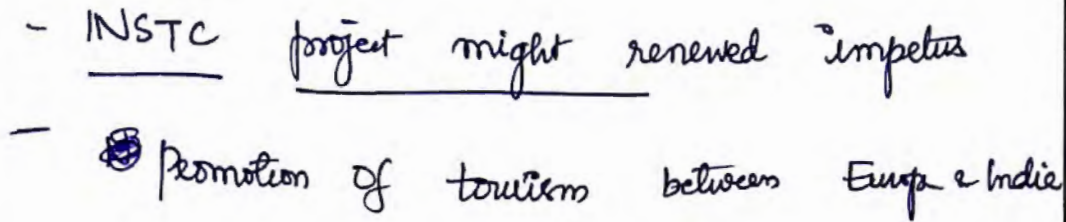 - INSTC project might renewed impetus
- Promotion of tourism between Europ & India